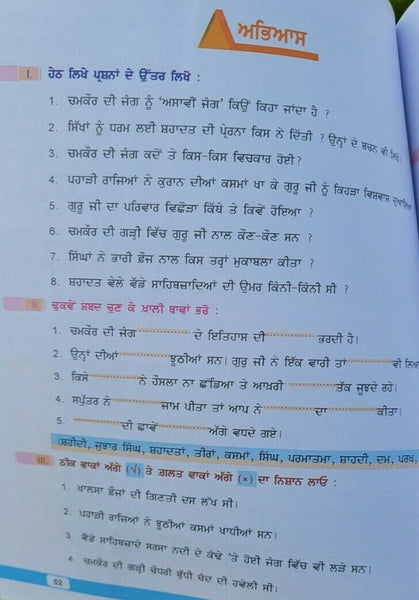 ਅਭਿਆਸ
I. ਹੇਠ ਲਿਖੇ ਪ੍ਰਸ਼ਨਾਂ ਦੇ ਉੱਤਰ ਲਿਖੋ :
1. ਚਮਕੌਰ ਦੀ ਜੰਗ ਨੂੰ 'ਅਸਾਵੀਂ ਜੰਗ' ਕਿਉਂ ਕਿਹਾ ਜਾਂਦਾ ਹੈ ?
2. ਸਿੱਖਾਂ ਨੂੰ ਧਰਮ ਲਈ ਸ਼ਹਾਦਤ ਦੀ ਪ੍ਰੇਰਨਾ ਕਿਸ ਨੇ ਦਿੱਤੀ ? ਉਨ੍ਹਾਂ ਦੇ ਬਚਨ ਵੀ ਲਿਖੋ।
3. ਚਮਕੌਰ ਦੀ ਜੰਗ ਕਦੋਂ ਤੇ ਕਿਸ-ਕਿਸ ਵਿਚਕਾਰ ਹੋਈ?
4. ਪਹਾੜੀ ਰਾਜਿਆਂ ਨੇ ਕੁਰਾਨ ਦੀਆਂ ਕਸਮਾਂ ਖਾ ਕੇ ਗੁਰੂ ਜੀ ਨੂੰ ਕਿਹੜਾ ਵਿਸ਼ਵਾਸ
5. ਗੁਰੂ ਜੀ ਦਾ ਪਰਿਵਾਰ ਵਿਛੋੜਾ ਕਿੱਥੇ ਤੇ ਕਿਵੇਂ ਹੋਇਆ ?
6. ਚਮਕੌਰ ਦੀ ਗੜ੍ਹੀ ਵਿੱਚ ਗੁਰੂ ਜੀ ਨਾਲ ਕੌਣ-ਕੌਣ ਸਨ ?
7. ਸਿੰਘਾਂ ਨੇ ਭਾਰੀ ਫ਼ੌਜ ਨਾਲ ਕਿਸ ਤਰ੍ਹਾਂ ਮੁਕਾਬਲਾ ਕੀਤਾ ?
8. ਸ਼ਹਾਦਤ ਵੇਲੇ ਵੱਡੇ ਸਾਹਿਬਜ਼ਾਦਿਆਂ ਦੀ ਉਮਰ ਕਿੰਨੀ-ਕਿੰਨੀ ਸੀ ?
II. ਢੁਕਵੇਂ ਸ਼ਬਦ ਚੁਣ ਕੇ ਖ਼ਾਲੀ ਥਾਵਾਂ ਭਰੋ :
1. ਚਮਕੌਰ ਦੀ ਜੰਗ ਦੇ ਇਤਿਹਾਸ ਦੀ ਭਰਦੀ ਹੈ।
2. ਉਨ੍ਹਾਂ ਦੀਆਂ ਝੂਠੀਆਂ ਸਨ। ਗੁਰੂ ਜੀ ਨੇ ਇੱਕ ਵਾਰੀ ਤਾਂ ਵੀ ਲਿਆ
3. ਕਿਸੇ ਨੇ ਹੌਸਲਾ ਨਾ ਛੱਡਿਆ ਤੇ ਆਖ਼ਰੀ ਤੱਕ ਜੂਝਦੇ ਰਹੇ।
4. ਸਪੁੱਤਰ ਨੇ ਜਾਮ ਪੀਤਾ ਤਾਂ ਆਪ ਨੇ ਦਾ ਕੀਤਾ।
5. ਦੀ ਛਾਵੇਂ ਅੱਗੇ ਵਧਦੇ ਗਏ।
(ਸ਼ਹੀਦੀ, ਜੁਝਾਰ ਸਿੰਘ, ਸ਼ਹਾਦਤਾਂ, ਤੀਰਾਂ, ਕਸਮਾਂ, ਸਿੰਘ, ਪਰਮਾਤਮਾ, ਸ਼ਾਹਦੀ, ਦਮ, ਪਰਖ,
III. ਠੀਕ ਵਾਕਾਂ ਅੱਗੇ (√) ਤੇ ਗ਼ਲਤ ਵਾਕਾਂ ਅੱਗੇ (×) ਦਾ ਨਿਸ਼ਾਨ ਲਾਓ :
1. ਖਾਲਸਾ ਫ਼ੌਜਾਂ ਦੀ ਗਿਣਤੀ ਦਸ ਲੱਖ ਸੀ।
2. ਪਹਾੜੀ ਰਾਜਿਆਂ ਨੇ ਝੂਠੀਆਂ ਕਸਮਾਂ ਖਾਧੀਆਂ ਸਨ।
3. ਵੱਡੇ ਸਾਹਿਬਜ਼ਾਦੇ ਸਰਸਾ ਨਦੀ ਦੇ ਕੰਢੇ 'ਤੇ ਹੋਈ ਜੰਗ ਵਿੱਚ ਵੀ ਲੜੇ ਸਨ।
4. ਚਮਕੌਰ ਦੀ ਗੜ੍ਹੀ ਚੌਧਰੀ ਬੁੱਧੀ ਚੰਦ ਦੀ ਹਵੇਲੀ ਸੀ।
52